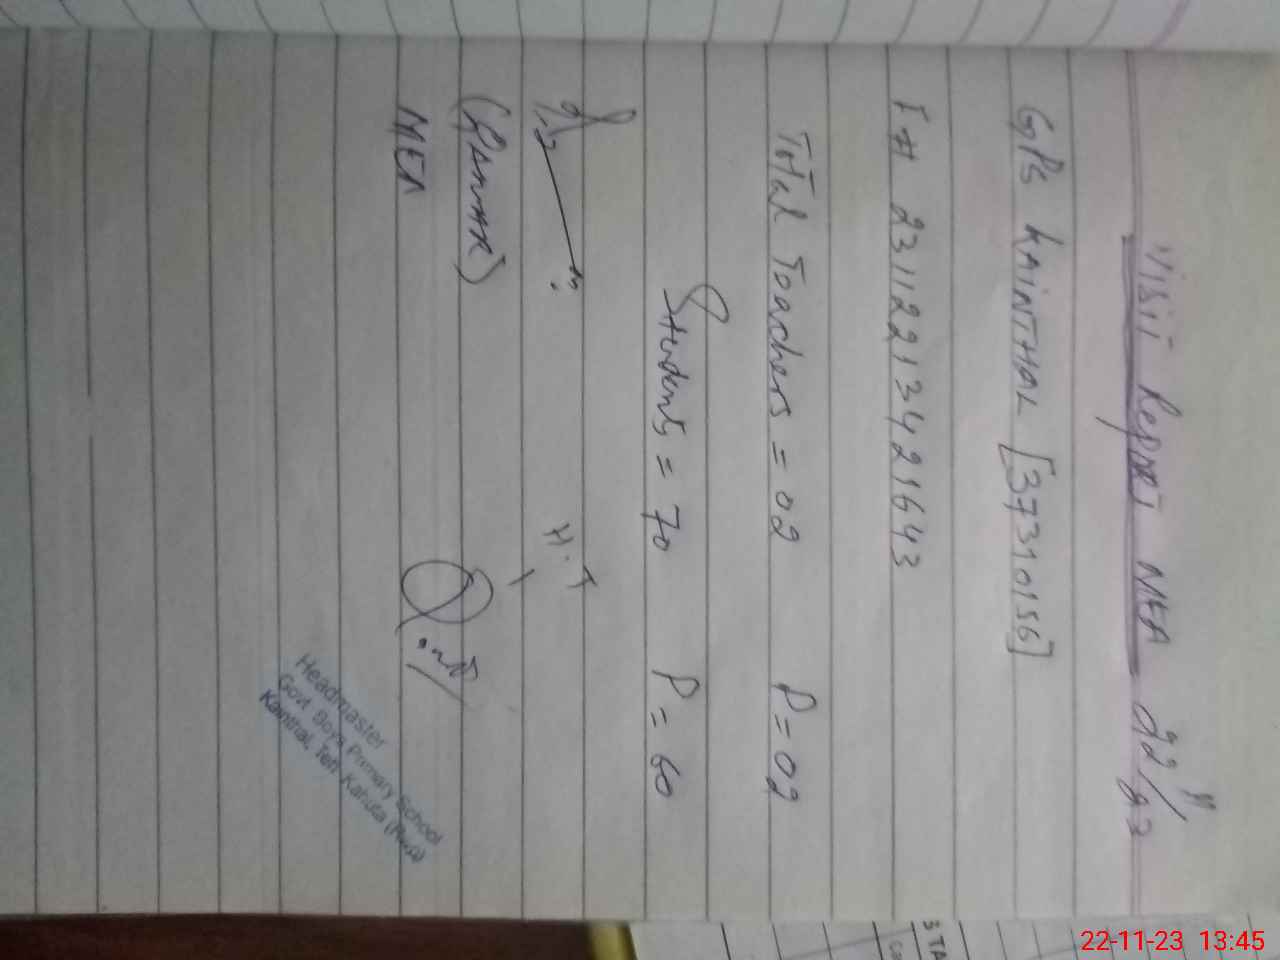 Visit Report MEA 22/11/23
GPS KAINTHAL [37310156]
I# 23112213421643
Total Teachers = 02 P = 02
Students = 70 P = 60
H.T
MEA
Headmaster
Govt Boys Primary School
Kainthal, Teh: Kahuta (Rwp)
3 TA
22-11-23 13:45